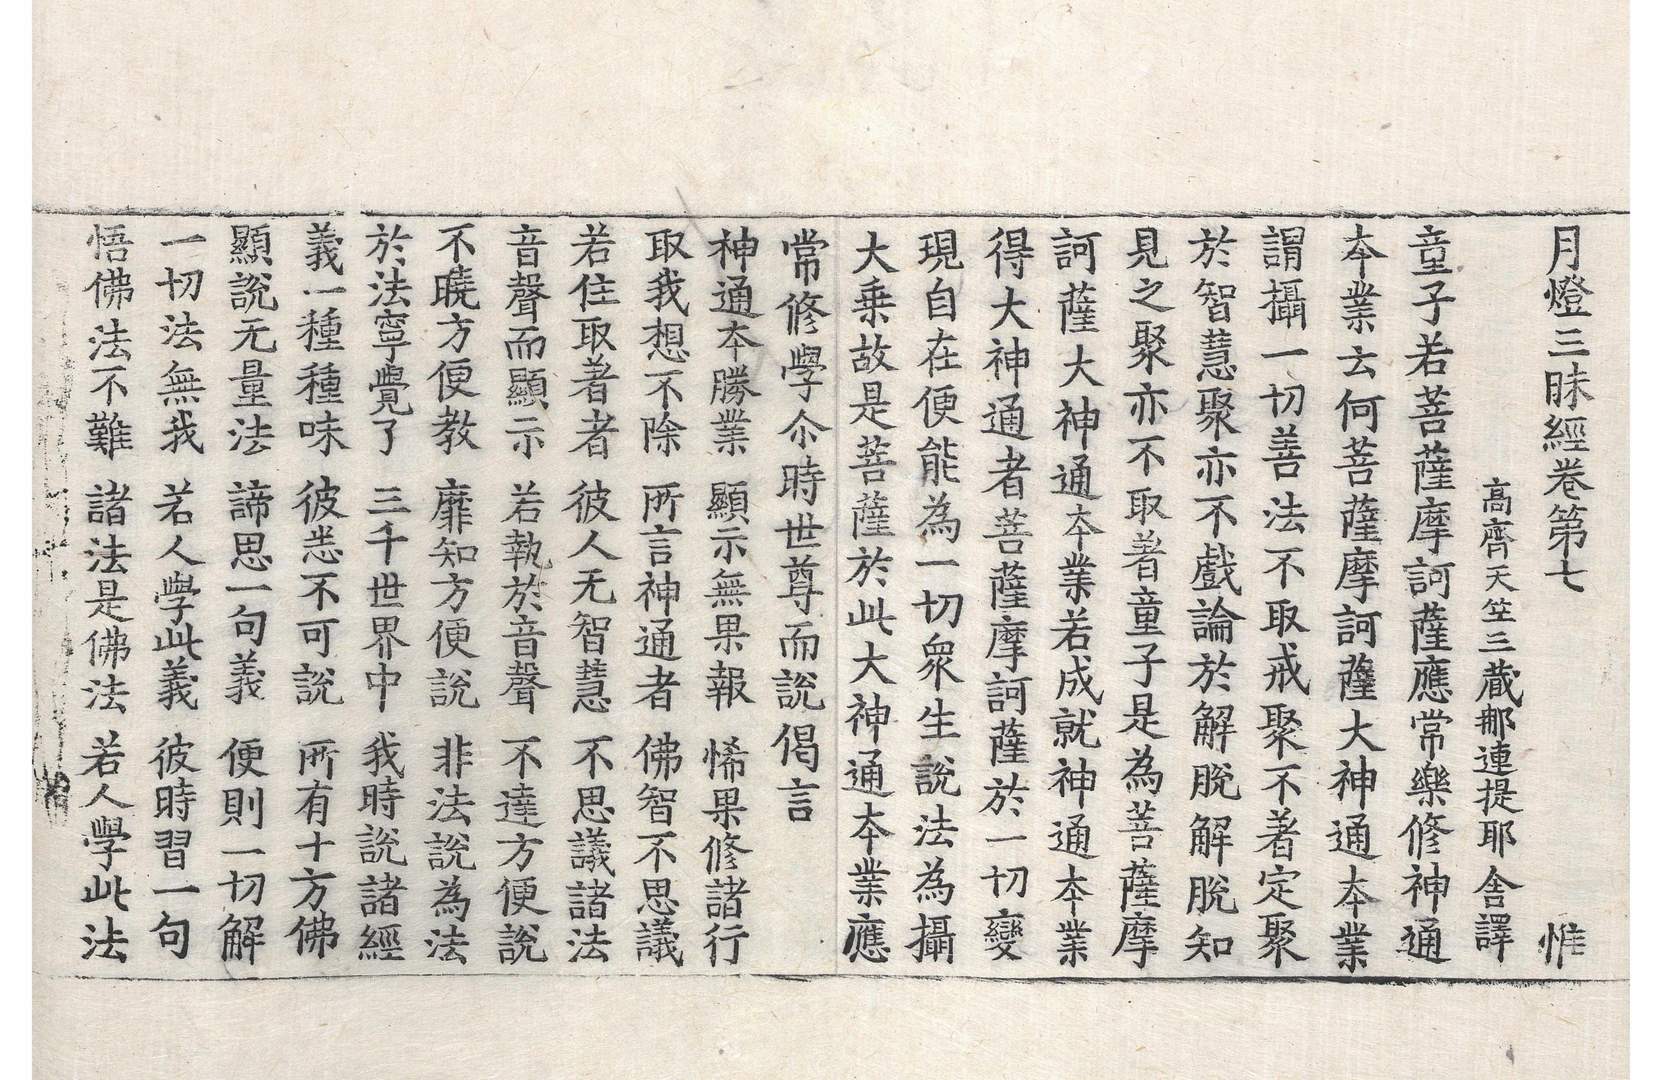 月燈三昧經卷第七 惟
高齊天竺三藏那連提耶舍譯
童子若菩薩摩訶薩應常樂修神通
本業云何菩薩摩訶薩大神通本業
謂攝一切善法不取戒聚不著定聚
於智慧聚亦不戲論於解脫解脫知
見之聚亦不取著童子是為菩薩摩
訶薩大神通本業若成就神通本業
得大神通者菩薩摩訶薩於一切變
現自在便能為一切眾生說法為攝
大乘故是菩薩於此大神通本業應
常修學尒時世尊而說偈言
神通本勝業 顯示無果報 悕果修諸行
取我想不除 所言神通者 佛智不思議
若住取著者 彼人无智慧 不思議諸法
音聲而顯示 若執於音聲 不達方便說
不曉方便教 靡知方便說 非法說為法
於法寧覺了 三千世界中 我時說諸經
義一種種味 彼悉不可說 所有十方佛
顯說无量法 諦思一句義 便則一切解
一切法無我 若人學此義 彼時習一句
悟佛法不難 諸法是佛法 若人學此法